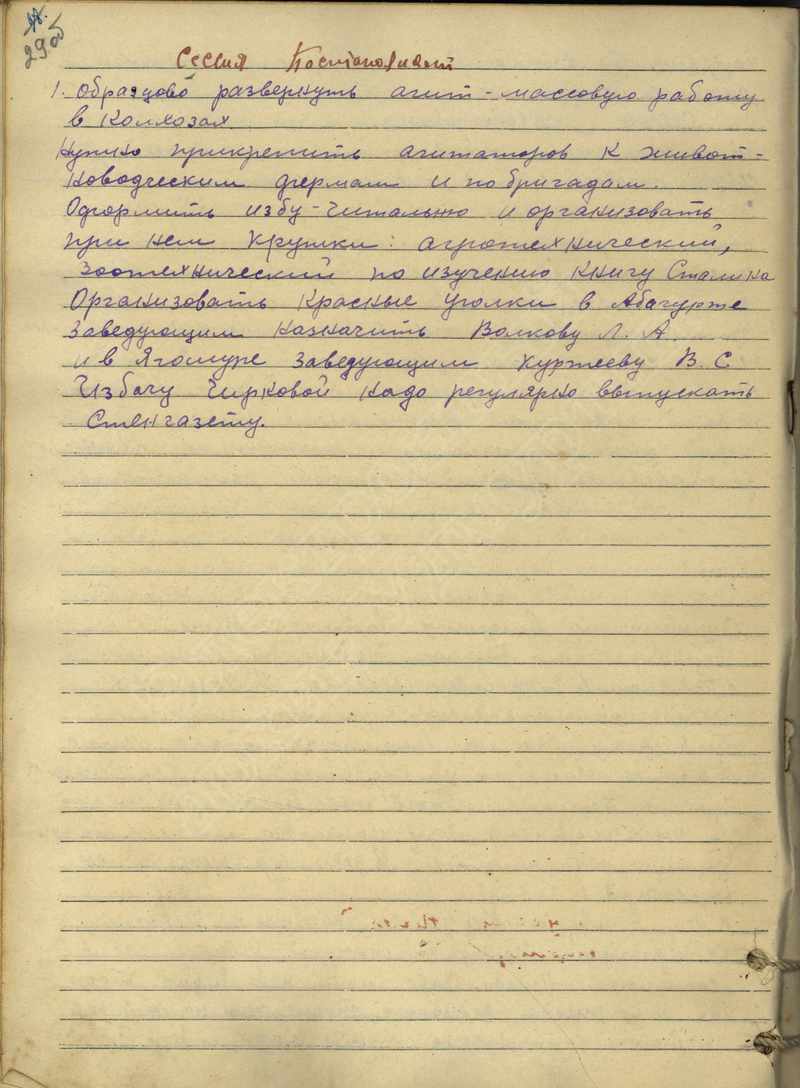 29об
Сессия Постановляет
1. Образцово развернуть агит-массовую работу
в колхозах
Нужно прикрепить агитаторов к живот-
новодческим фермам и по бригадам.
Оформить избу-читальню и организовать
при нем кружки: агротехнический,
зоотехнический по изучению книгу Сталина
Организовать красные уголки в Абагурте
заведующим назначить Волкову Л. А.
и в Ягошуре заведующим Хуртееву В. С
Избачу Чирковой надо регулярно выпускать
стенгазету.